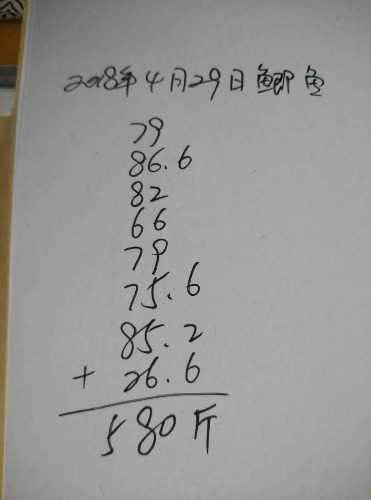 2018年4月29日鲫鱼
79
86.6
82
66
79
75.6
85.2
+ 26.6
580斤